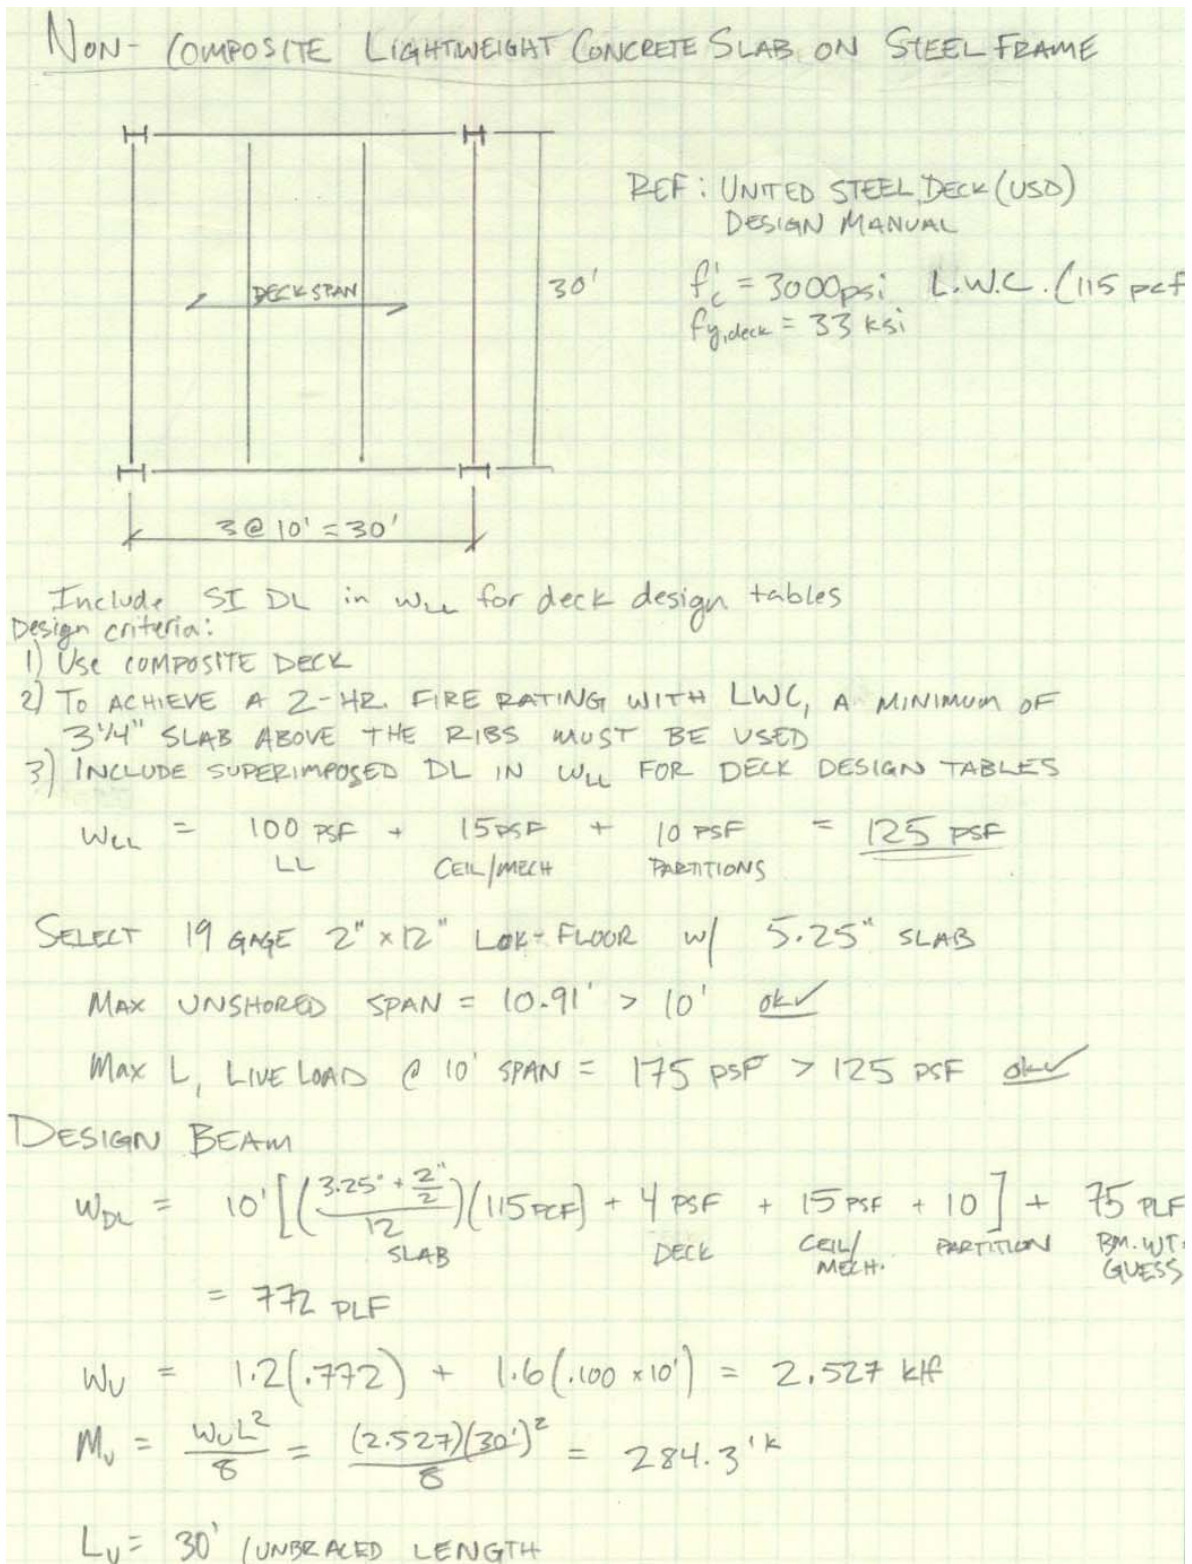 NON-COMPOSITE LIGHTWEIGHT CONCRETE SLAB ON STEEL FRAME
REF: UNITED STEEL DECK (USD)
DESIGN MANUAL
DECK SPAN
30'
f'c = 3000psi L.W.C. (115 pcf
fy,deck = 33 ksi
3@10' = 30'
Include SI DL in wLL for deck design tables
Design criteria:
1) USE COMPOSITE DECK
2) TO ACHIEVE A 2-HR. FIRE RATING WITH LWC, A MINIMUM OF
3 1/4" SLAB ABOVE THE RIBS MUST BE USED
3) INCLUDE SUPERIMPOSED DL IN WLL FOR DECK DESIGN TABLES
WLL = 100 PSF + 15PSF + 10 PSF = 125 PSF
LL CEIL/MECH PARTITIONS
SELECT 19 GAGE 2" x 12" LOK-FLOOR w/ 5.25" SLAB
MAX UNSHORED SPAN = 10.91' > 10' ok✓
MAX L, LIVE LOAD @ 10' SPAN = 175 PSF > 125 PSF ok✓
DESIGN BEAM
WDL = 10'[((3.25" + 2"/2)/12)(115 PCF) + 4 PSF + 15 PSF + 10] + 75 PLF
SLAB DECK CEIL/ PARTITION BM. WT.
MECH. GUESS
= 772 PLF
WU = 1.2(.772) + 1.6(.100 x 10') = 2.527 klf
MU = WUL²/8 = (2.527)(30')²/8 = 284.3'k
LU = 30' (UNBRACED LENGTH